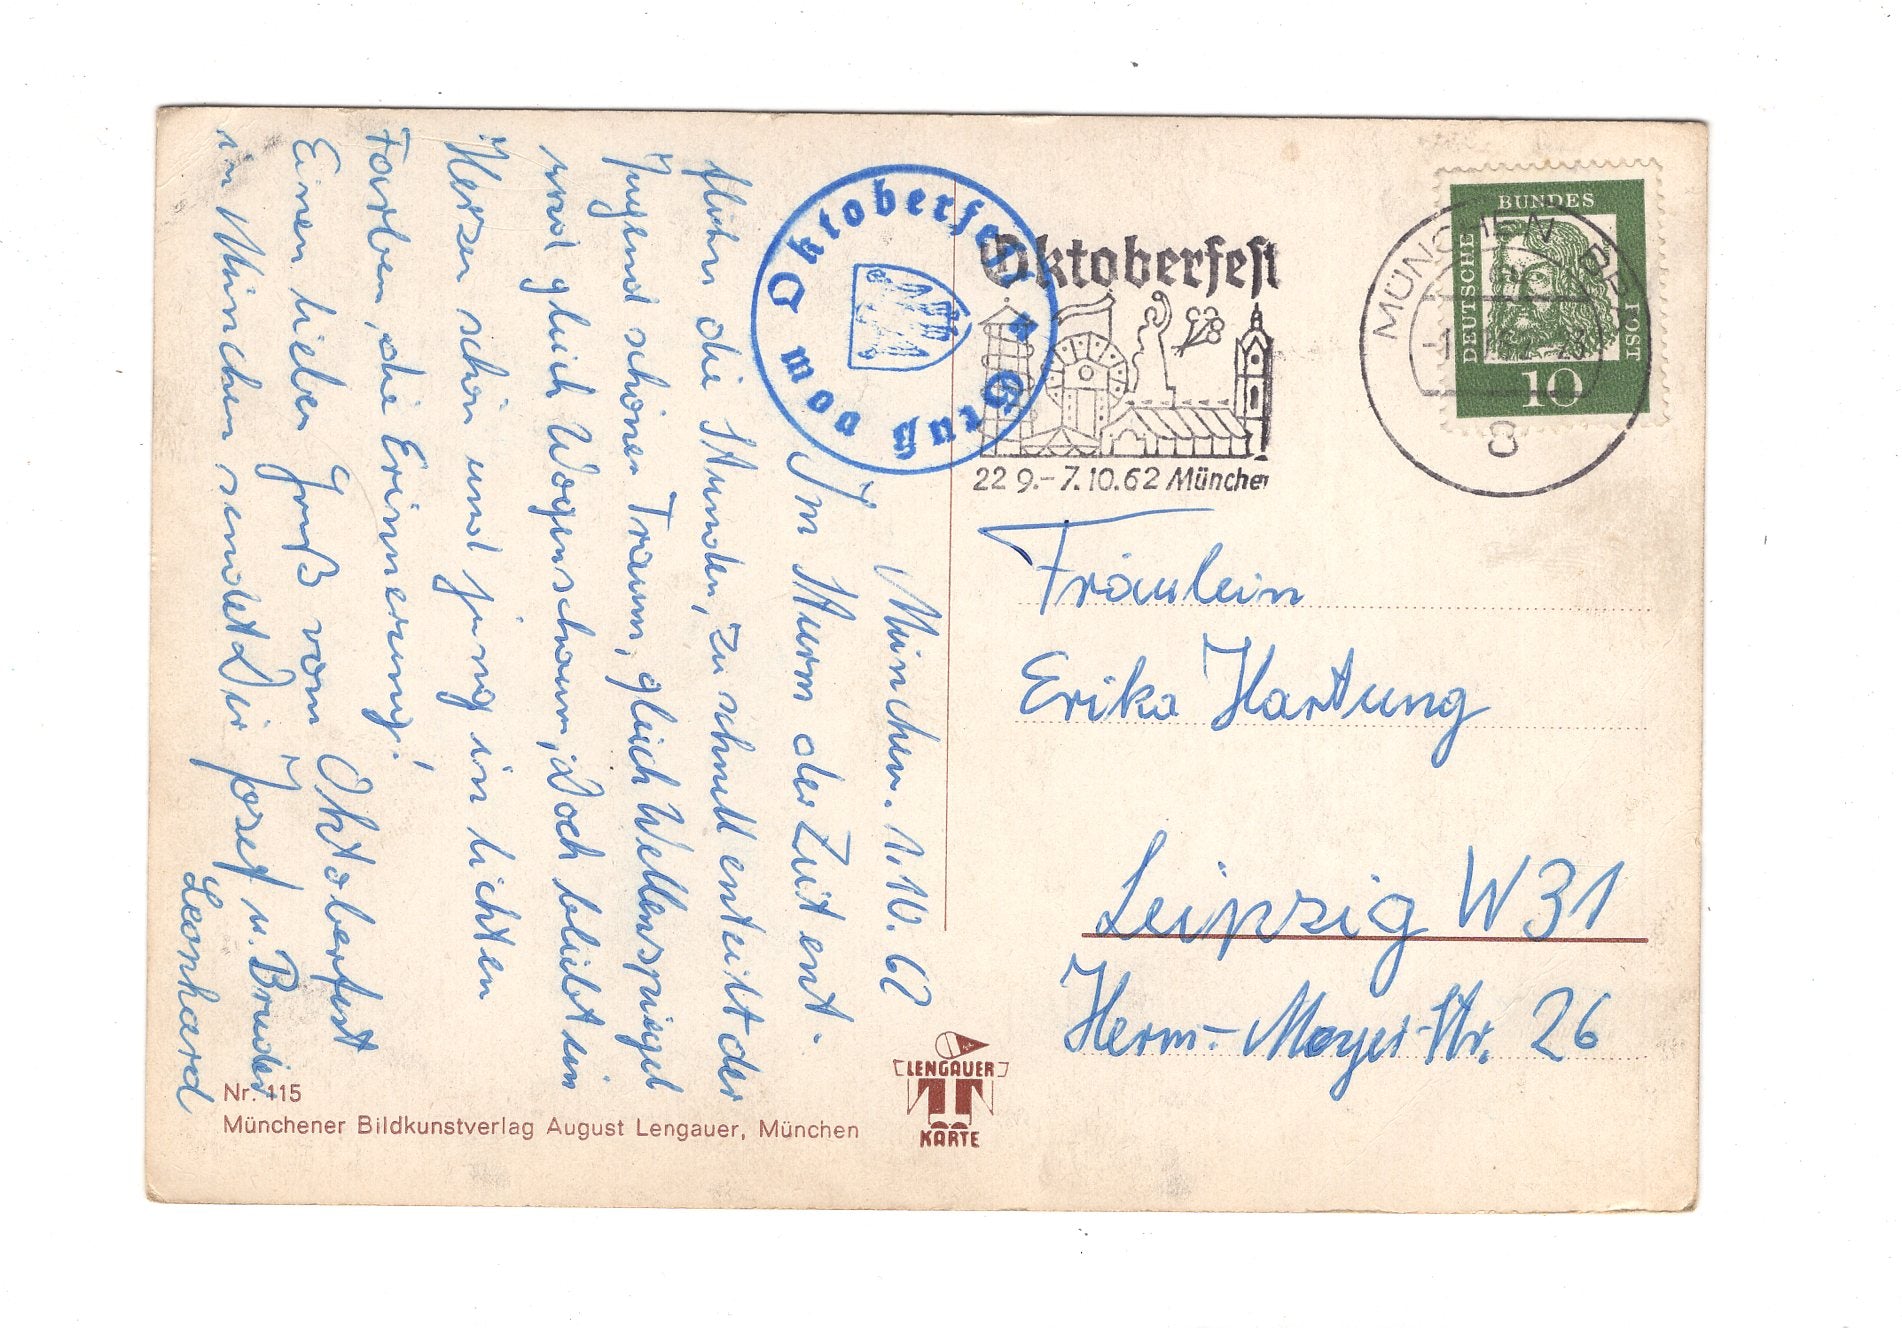 München. 1.10.62
Im Sturm der Zeit ent-
fliehn die Stunden, zu schnell enteilt der
Jugend schöner Traum, gleich Wellenspiegel
und gleich Wogenschaum, Doch bleibt ein
Herzen schön und jung in lichten
Farben, die Erinnerung!
Einen lieben Gruß vom Oktoberfest
in München sendet Dir Josef u. Bruder
Leonhard
Gruß vom Oktoberfest
Oktoberfest
22 9.-7.10.62 München
MÜNCHEN
8
DEUTSCHE
BUNDES
POST
10
Fräulein
Erika Hartung
Leipzig W 31
Herm.-Meyer-Str. 26
Nr. 115
Münchener Bildkunstverlag August Lengauer, München
LENGAUER
KARTE